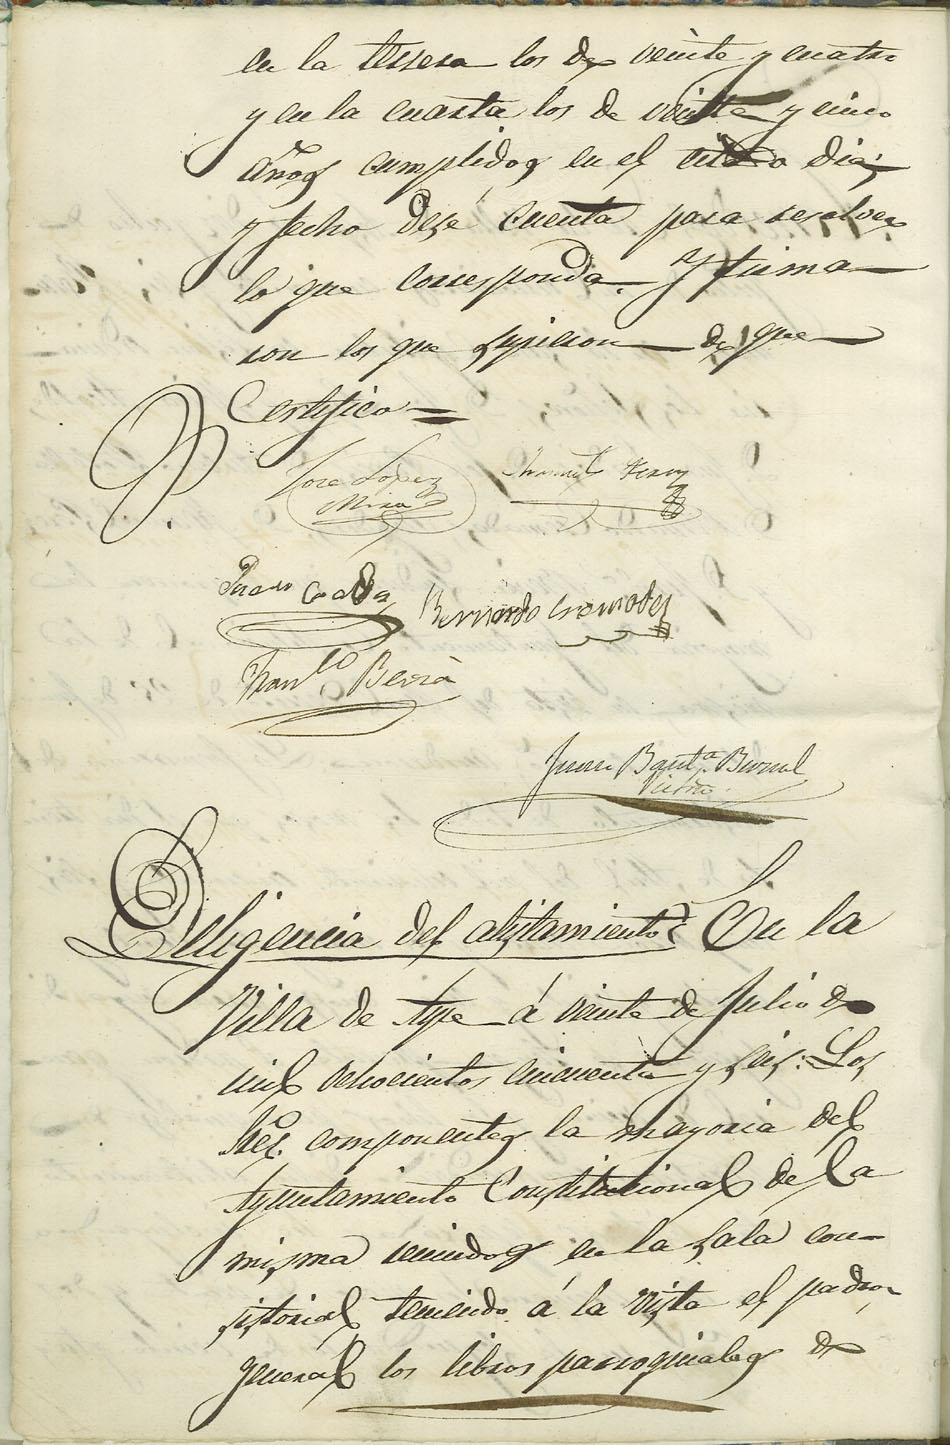 en la tersera los de veinte y cuatro
y en la cuarta los de veinte y cinco
años cumplidos en el citado dia;
y fecho dese cuenta para resolver
lo que corresponda. Y firma
ron los que supieron de que
Certifico =
Jose Lopez Manuel
Mira
Bernardo Cremades
Franco Berna
Juan Bauta Bernal
Diligencia del alistamiento En la
Villa de Aspe á veinte de Julio de
mil ochocientos cincuenta y seis: Los
Sres. componentes la mayoria del
Ayuntamiento Constitucional de la
misma reunidos en la sala con-
sistorial teniendo á la vista el padron
general los libros parroquiales de